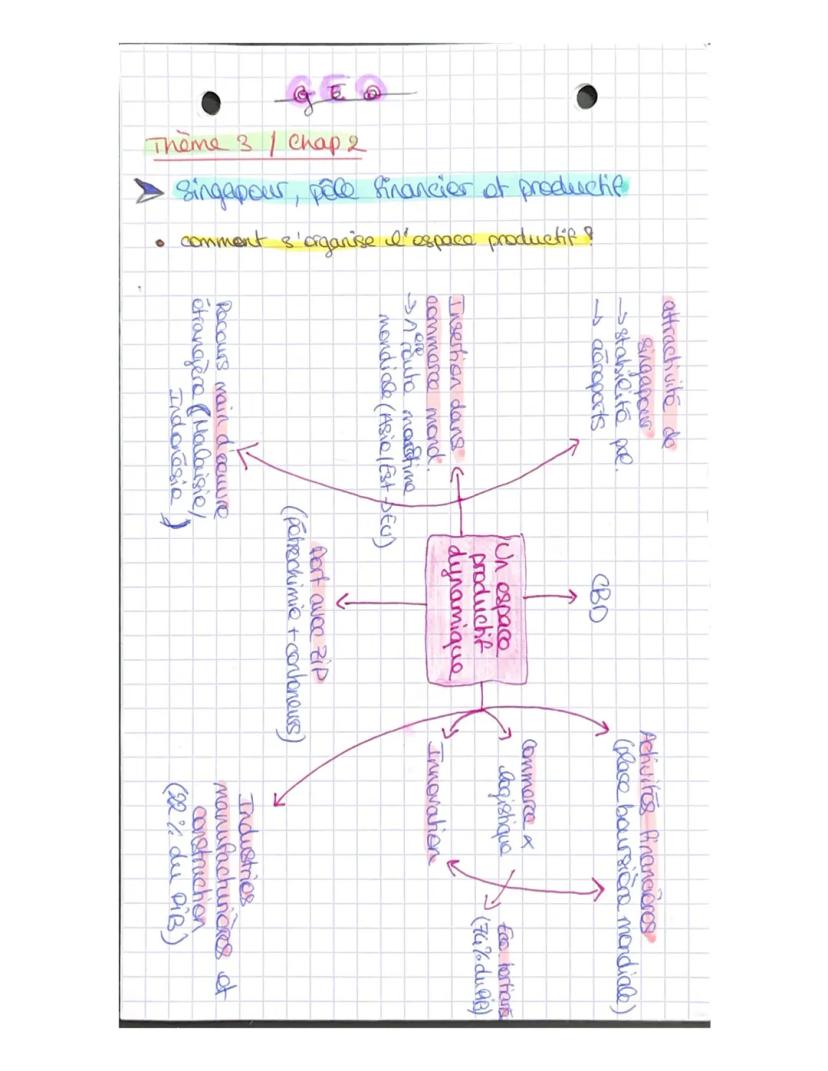 GEO
Thème 3 / Chap 2
Singapour, pôle financier et productif
• comment s'organise l'espace productif ?
attractivité de
singapour
→ stabilité pol.
→ aéroports
Insertion dans
commerce mond.
→ 1ère route maritime
mondiale (Asie/Est → EU)
Recours main d'œuvre
étrangère (Malaisie/
Indonésie)
Un espace
productif
dynamique
CBD
Port avec ZIP
(pétrochimie + conteneurs)
Activités financières
(place boursière mondiale)
Commerce &
logistique
Innovation
Eco. tertiaire
(74% du PIB)
Industries
manufacturières et
construction
(22% du PIB)